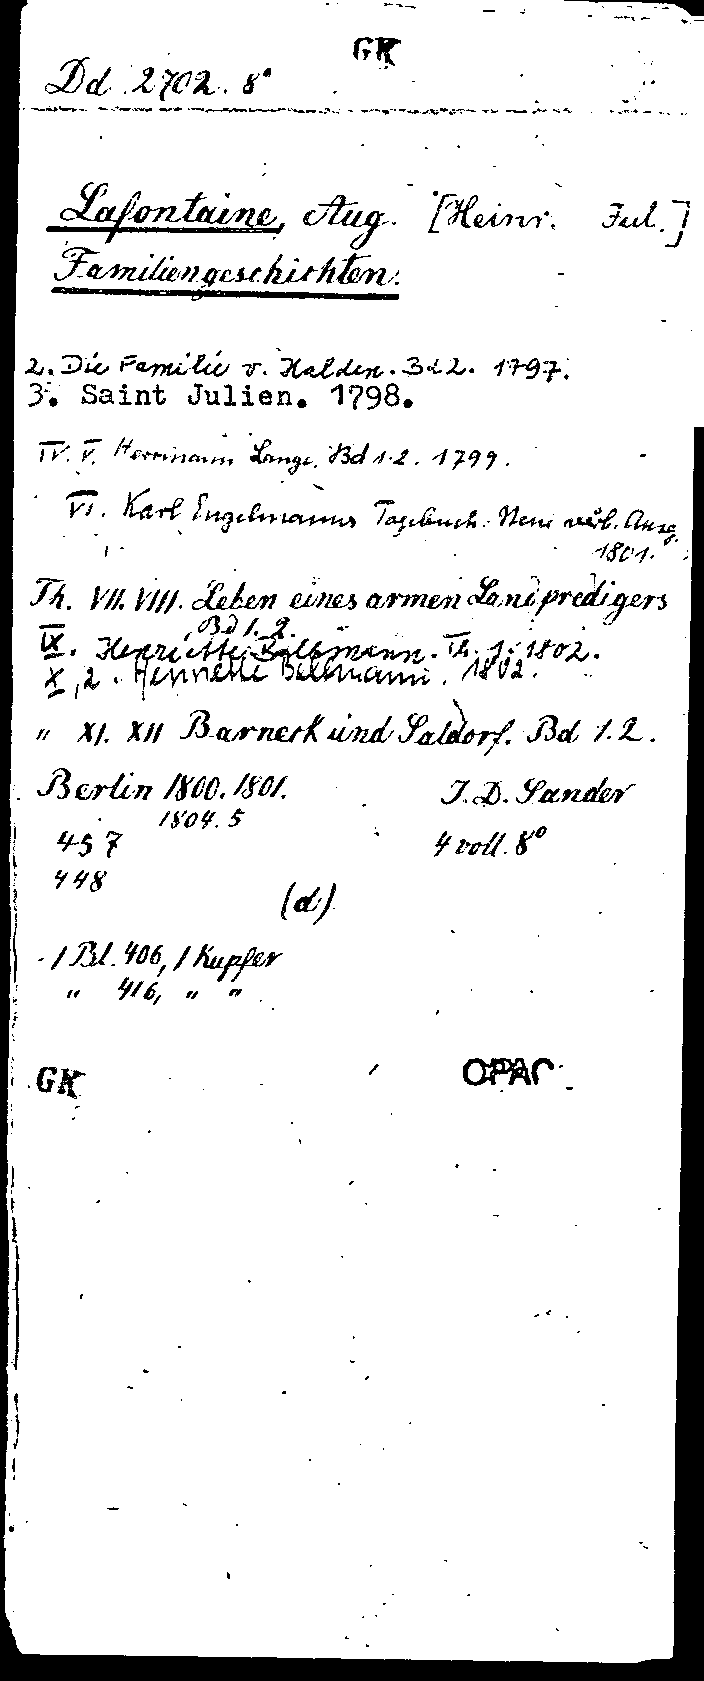 GK
Dd 2702. 8°
Lafontaine, Aug. [Heinr. Jul.]
Familiengeschichten.
2. Die Familie v. Halden. Bd 2. 1797.
3. Saint Julien. 1798.
IV. V. Herrmann Lange. Bd 1.2. 1799.
VI. Karl Engelmanns Tagebuch. Neue verb. Ausg.
1801.
Th. VII. VIII. Leben eines armen Landpredigers
Bd 1.2.
IX. Henriette Bellmann. Th. 1. 1802.
X,2. Henriette Bellmann. 1802.
" XI. XII Barneck und Saldorf. Bd 1.2.
Berlin 1800. 1801. J. D. Sander
1804. 5
457 4 voll. 8°
448
(d)
1 Bl. 406, 1 Kupfer
" 416, " "
GK OPAC